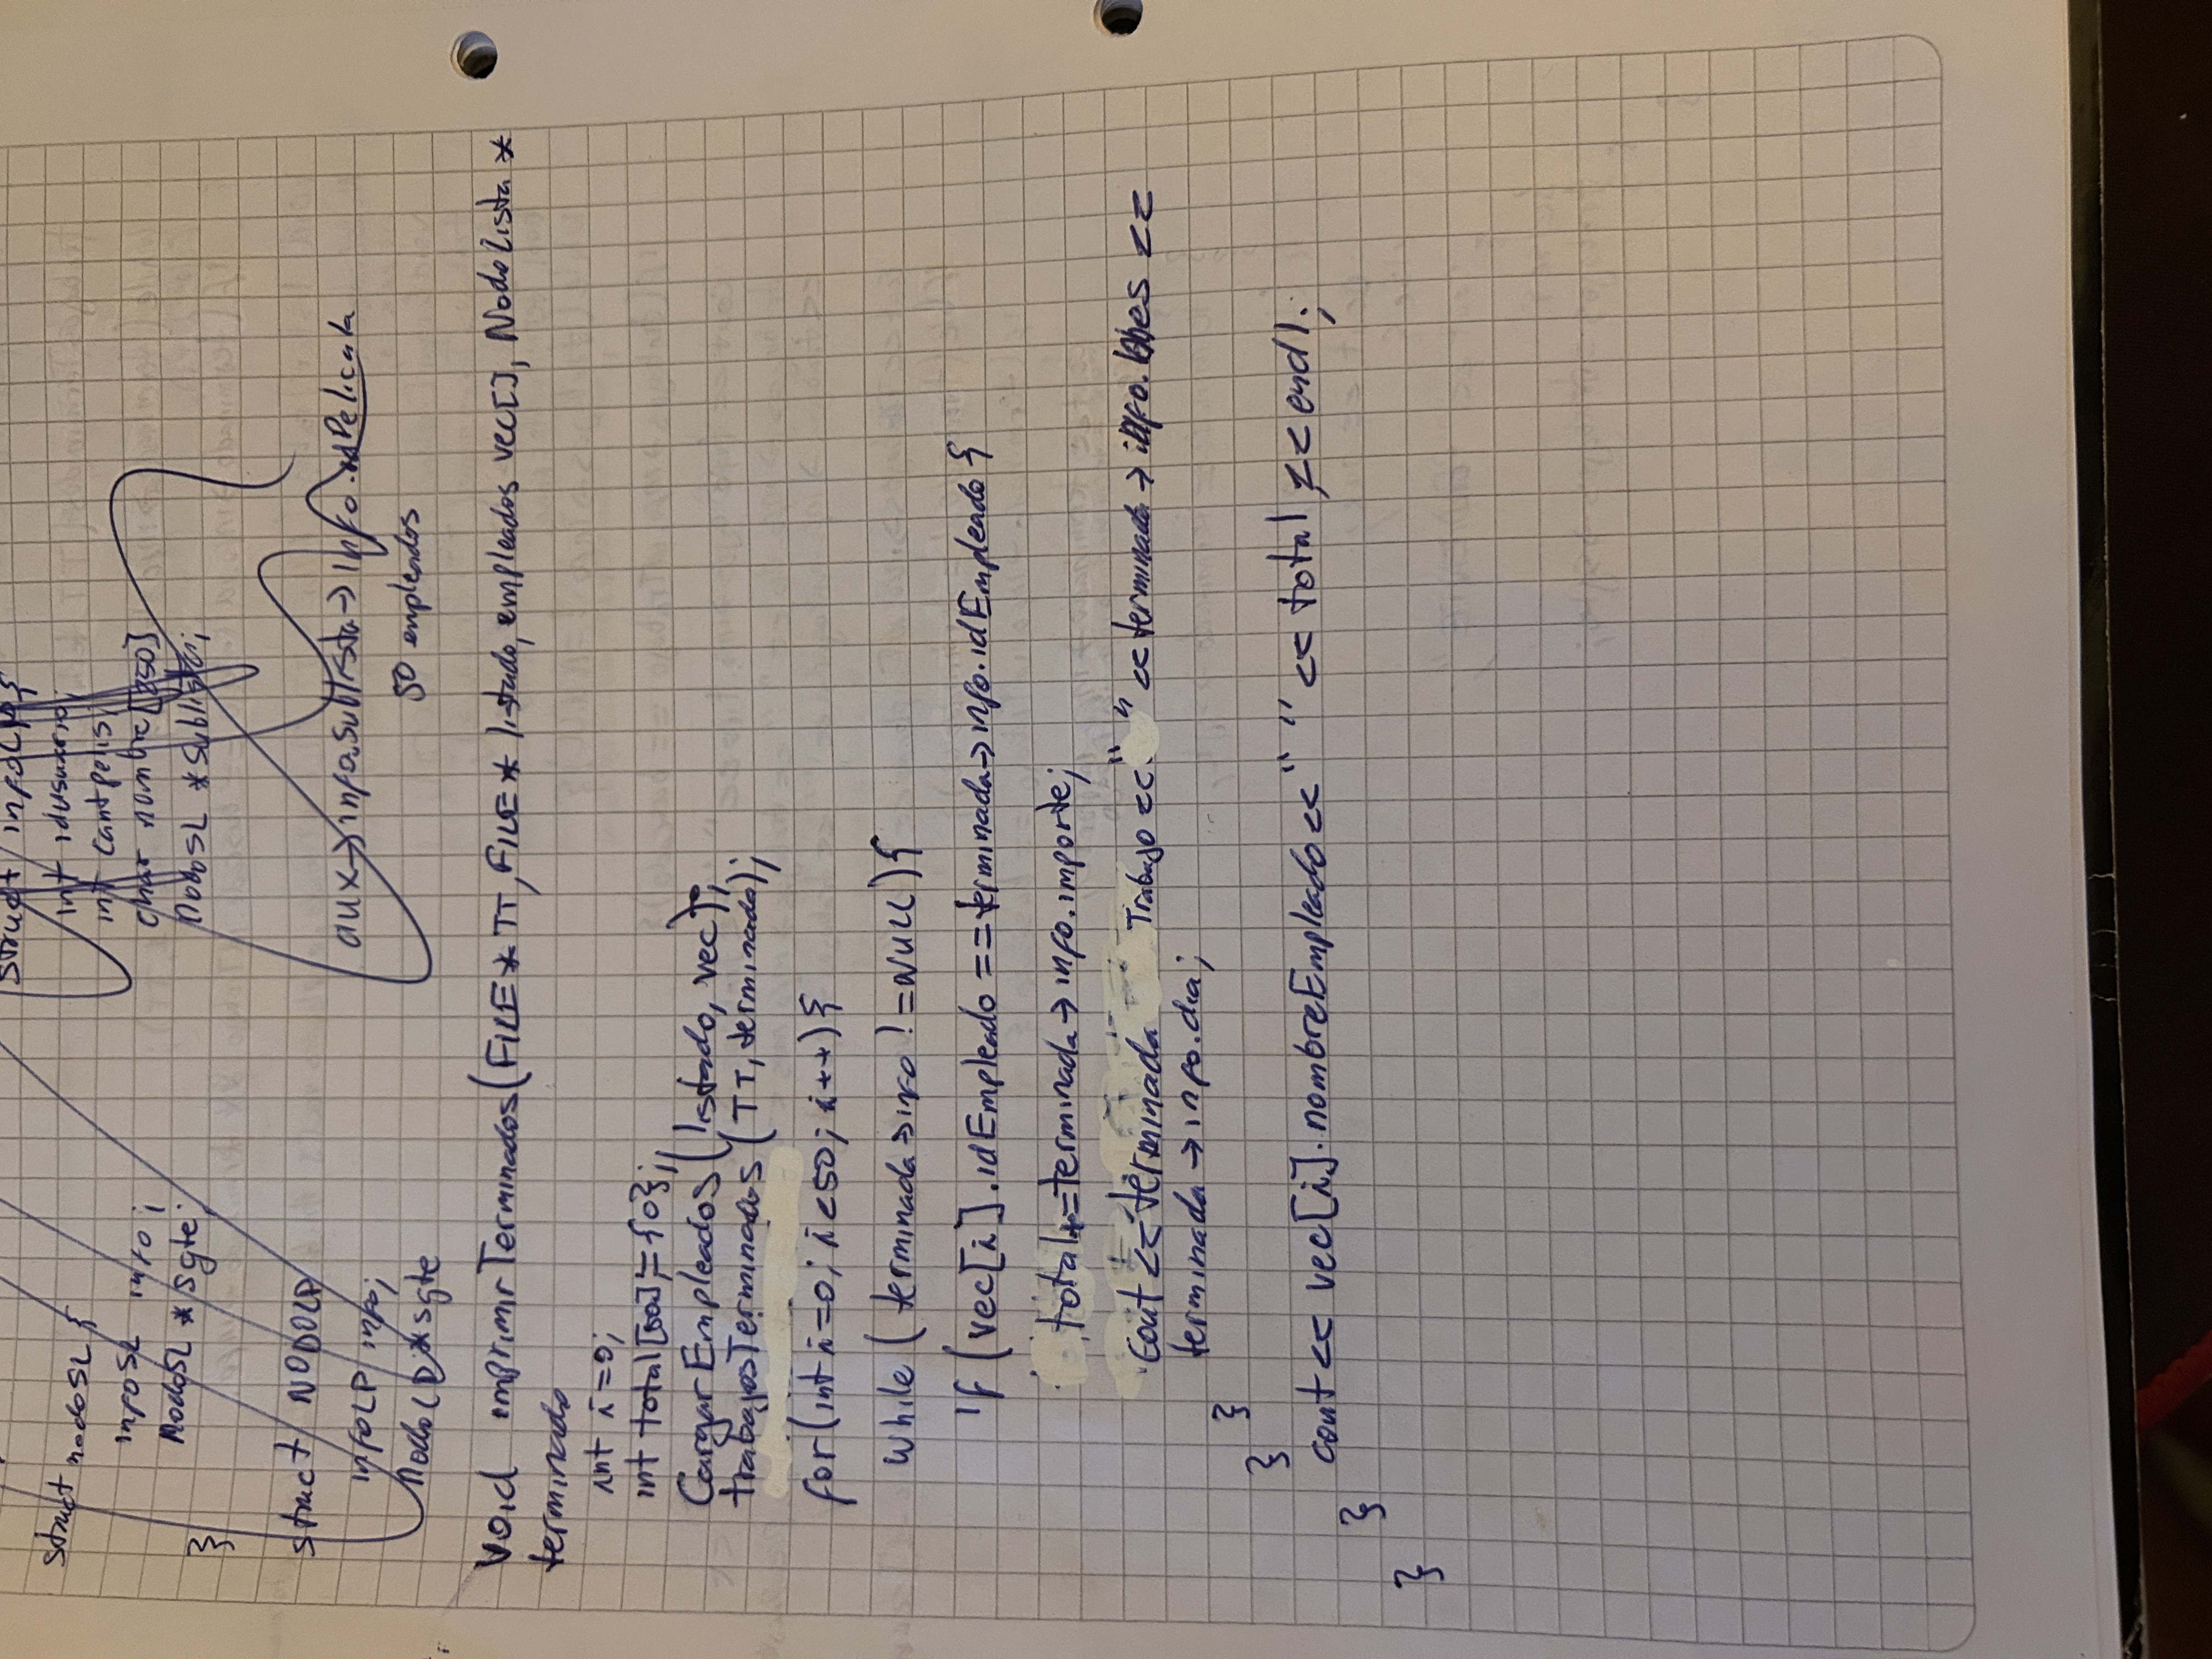 struct nodoSL {
infoSL info;
NodoSL * sgte;
}
struct infoLP {
int idusuario;
int cantpelis;
char nombre[250]
NodoSL *sublista;
struct NODOLP
infoLP info;
NodoLP *sgte
aux->info.sublista->info.idPelicula
50 empleados
void imprimirTerminados(FILE* TT, FILE* listado, empleados vec[], NodoLista *
terminado
int i=0;
int total[50]={0};
CargarEmpleados(listado, vec);
trabajosTerminados(TT, terminada);
for(int i=0; i<50; i++){
while (terminada->info !=NULL){
if (vec[i].idEmpleado == terminada->info.idEmpleado {
total+=terminada->info.importe;
cout << terminada Trabajo << " " << terminada->info.mes <<
terminada->info.dia;
}
}
cout << vec[i].nombreEmpleado << " " << total << endl;
}
}